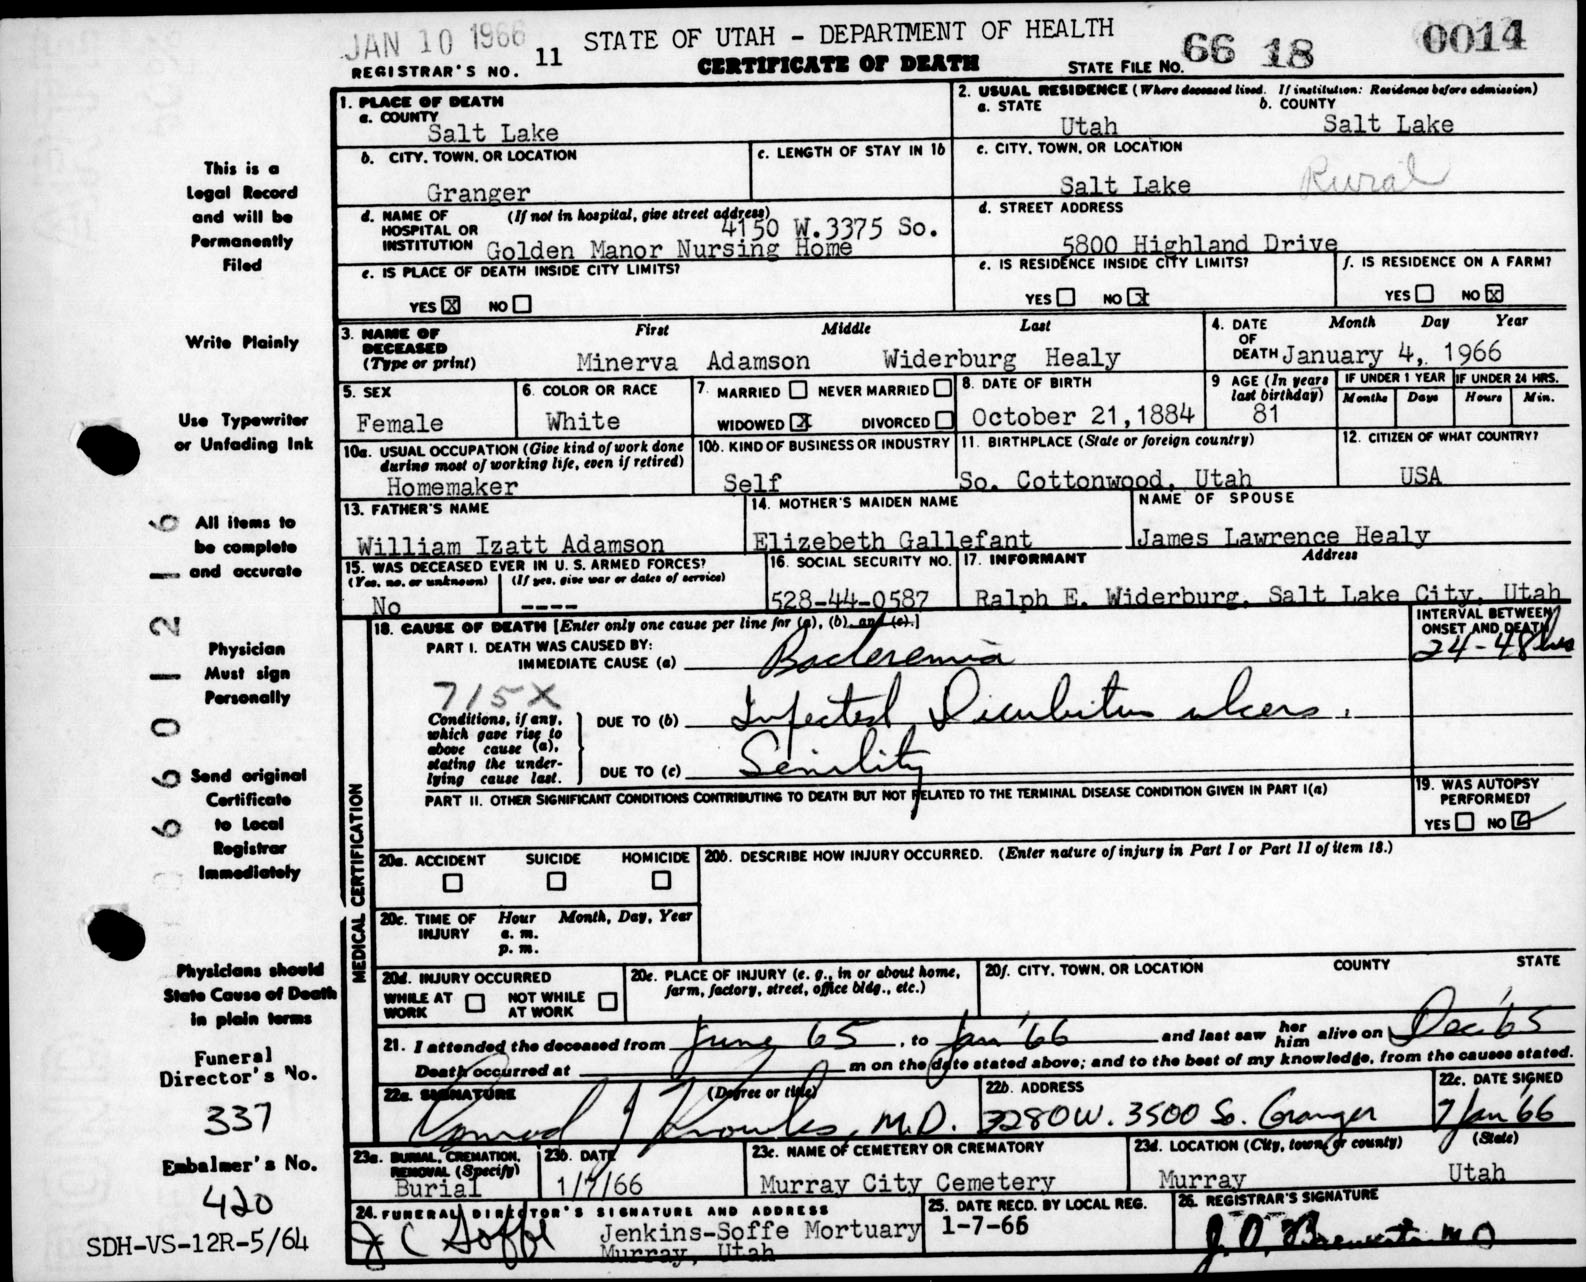 JAN 10 1966
REGISTRAR'S NO. 11
STATE OF UTAH - DEPARTMENT OF HEALTH
CERTIFICATE OF DEATH
STATE FILE NO. 66 18
0014
This is a
Legal Record
and will be
Permanently
Filed
Write Plainly
Use Typewriter
or Unfading Ink
All items to
be complete
and accurate
Physician
Must sign
Personally
Send original
Certificate
to Local
Registrar
Immediately
Physicians should
State Cause of Death
in plain terms
Funeral
Director's No.
337
Embalmer's No.
420
SDH-VS-12R-5/64
1. PLACE OF DEATH
a. COUNTY
Salt Lake
b. CITY, TOWN, OR LOCATION
Granger
c. LENGTH OF STAY IN 1b
d. NAME OF HOSPITAL OR INSTITUTION (If not in hospital, give street address)
4150 W.3375 So.
Golden Manor Nursing Home
e. IS PLACE OF DEATH INSIDE CITY LIMITS?
YES X NO
2. USUAL RESIDENCE (Where deceased lived. If institution: Residence before admission)
a. STATE
Utah
b. COUNTY
Salt Lake
c. CITY, TOWN, OR LOCATION
Salt Lake Rural
d. STREET ADDRESS
5800 Highland Drive
e. IS RESIDENCE INSIDE CITY LIMITS?
YES NO X
f. IS RESIDENCE ON A FARM?
YES NO X
3. NAME OF DECEASED (Type or print)
First Middle Last
Minerva Adamson Widerburg Healy
4. DATE OF DEATH
Month Day Year
January 4, 1966
5. SEX
Female
6. COLOR OR RACE
White
7. MARRIED NEVER MARRIED
WIDOWED X DIVORCED
8. DATE OF BIRTH
October 21,1884
9 AGE (In years last birthday)
81
IF UNDER 1 YEAR
Months Days
IF UNDER 24 HRS.
Hours Min.
10a. USUAL OCCUPATION (Give kind of work done during most of working life, even if retired)
Homemaker
10b. KIND OF BUSINESS OR INDUSTRY
Self
11. BIRTHPLACE (State or foreign country)
So. Cottonwood, Utah
12. CITIZEN OF WHAT COUNTRY?
USA
13. FATHER'S NAME
William Izatt Adamson
14. MOTHER'S MAIDEN NAME
Elizebeth Gallefant
NAME OF SPOUSE
James Lawrence Healy
15. WAS DECEASED EVER IN U. S. ARMED FORCES?
(Yes, no, or unknown) (If yes, give war or dates of service)
No ----
16. SOCIAL SECURITY NO.
528-44-0587
17. INFORMANT Address
Ralph E. Widerburg, Salt Lake City, Utah
MEDICAL CERTIFICATION
18. CAUSE OF DEATH [Enter only one cause per line for (a), (b), and (c).]
INTERVAL BETWEEN ONSET AND DEATH
PART I. DEATH WAS CAUSED BY:
IMMEDIATE CAUSE (a) Bacteremia 24-48 hrs
715X
Conditions, if any, which gave rise to above cause (a), stating the underlying cause last.
DUE TO (b) Infected Dicubitus ulcers.
DUE TO (c) Senility
PART II. OTHER SIGNIFICANT CONDITIONS CONTRIBUTING TO DEATH BUT NOT RELATED TO THE TERMINAL DISEASE CONDITION GIVEN IN PART I(a)
19. WAS AUTOPSY PERFORMED?
YES NO
20a. ACCIDENT SUICIDE HOMICIDE
20b. DESCRIBE HOW INJURY OCCURRED. (Enter nature of injury in Part I or Part II of item 18.)
20c. TIME OF INJURY
Hour Month, Day, Year
a. m.
p. m.
20d. INJURY OCCURRED
WHILE AT WORK NOT WHILE AT WORK
20e. PLACE OF INJURY (e. g., in or about home, farm, factory, street, office bldg., etc.)
20f. CITY, TOWN, OR LOCATION COUNTY STATE
21. I attended the deceased from June 65, to Jan '66 and last saw her him alive on Dec '65
Death occurred at m on the date stated above; and to the best of my knowledge, from the causes stated.
22a. SIGNATURE (Degree or title)
Conrad J Knowles, M.D.
22b. ADDRESS
3280 W. 3500 So. Granger
22c. DATE SIGNED
7 Jan '66
23a. BURIAL, CREMATION, REMOVAL (Specify)
Burial
23b. DATE
1/7/66
23c. NAME OF CEMETERY OR CREMATORY
Murray City Cemetery
23d. LOCATION (City, town, or county) (State)
Murray Utah
24. FUNERAL DIRECTOR'S SIGNATURE AND ADDRESS
J C Soffe Jenkins-Soffe Mortuary
Murray, Utah
25. DATE RECD. BY LOCAL REG.
1-7-66
26. REGISTRAR'S SIGNATURE